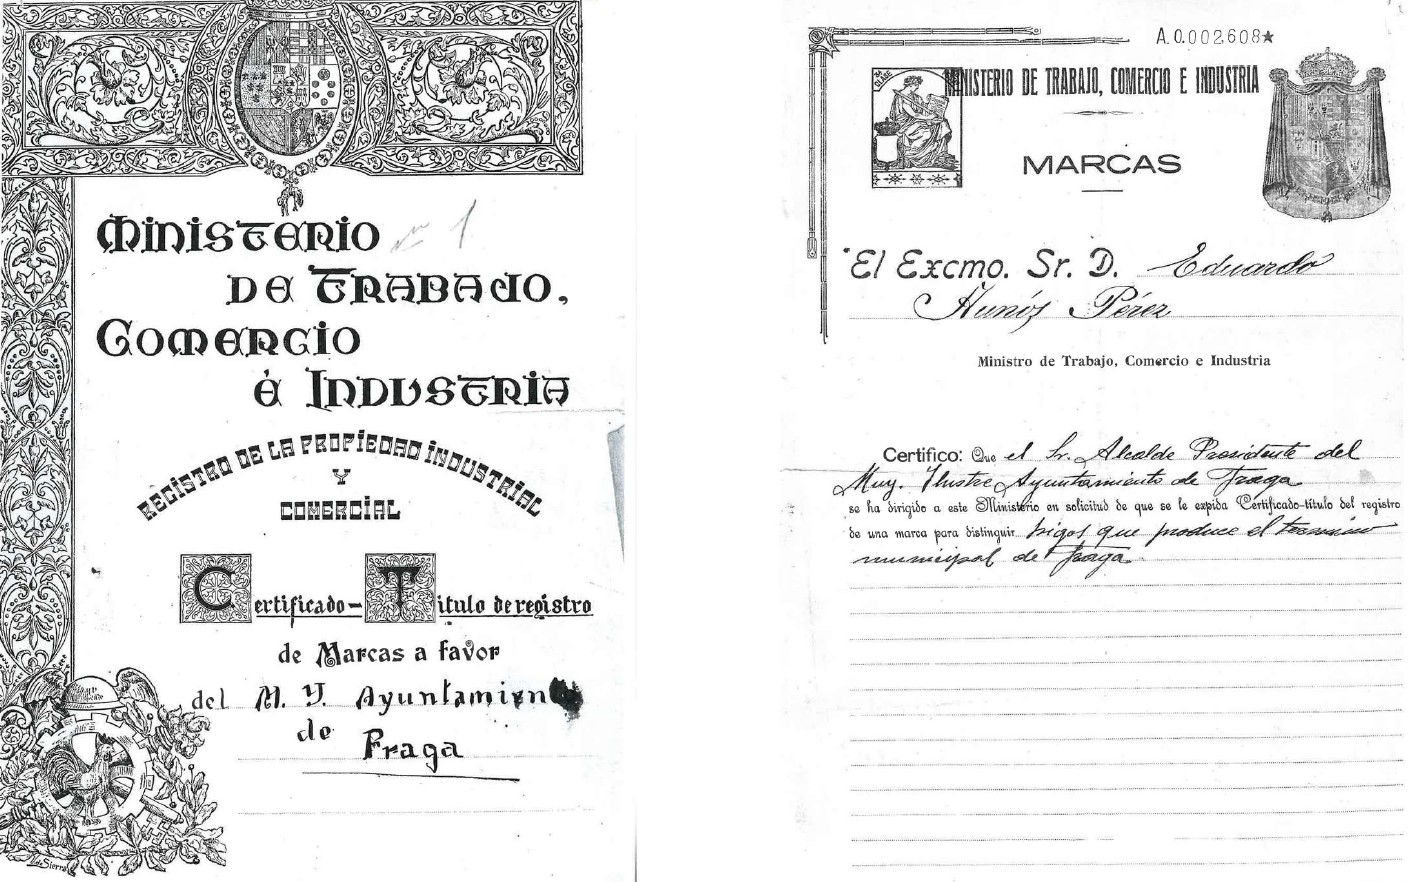 Ministerio nº 1
de Trabajo,
Comercio
é Industria
Registro de la Propiedad Industrial
y
Comercial
Certificado-Titulo de registro
de Marcas a favor
del M. Y. Ayuntamien
de
Fraga
La Sierra
A.0.002,608★
MINISTERIO DE TRABAJO, COMERCIO E INDUSTRIA
MARCAS
El Excmo. Sr. D. Eduardo
Aunós Pérez
Ministro de Trabajo, Comercio e Industria
Certifico: Que el Sr. Alcalde Presidente del
Muy. Ilustre Ayuntamiento de Fraga
se ha dirigido a este Ministerio en solicitud de que se le expida Certificado-título del registro
de una marca para distinguir higos que produce el termino
municipal de Fraga